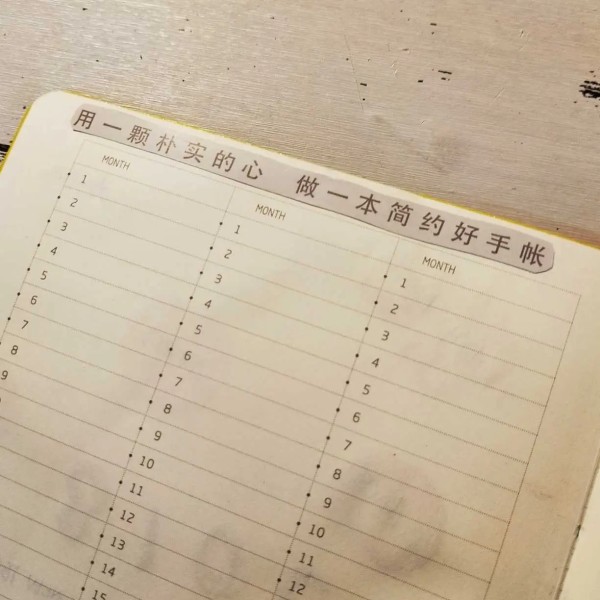 用一颗朴实的心 做一本简约好手帐
MONTH MONTH MONTH
1 1 1
2 2 2
3 3 3
4 4 4
5 5 5
6 6 6
7 7 7
8 8 8
9 9 9
10 10
11 11
12 12
13
14
15